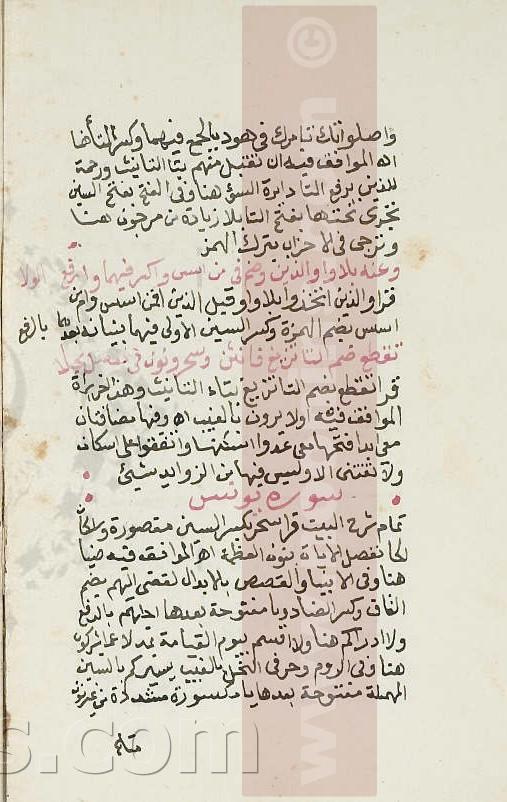 واصلواتك تامرك في هود بالجمع فيهما وكسر التا هنا
اه الموافق فيه ان تقبل منهم بتا التانيث ورحمة
للذين برفع التا دايرة السوء هنا وفي الفتح بفتح السين
تجري تحتها بفتح التا بلا زيادة من مرجون هنا
وترجي في الاحزاب بترك الهمز
وعنه بلا واو الذين وضم في من اسس واكسر فيهما وارفع الولا
قرا والذين اتخذوا بلا واو قبل الذين افمن اسس وامن
اسس بضم الهمزة وكسر السين الاولى فيهما بنيانه بعدهما بالرفع
تقطع ضم التا
قرا تقطع بضم التا تزيغ بتاء التانيث وهذا
الموافق فيه اولا يرون بالغيب اه وفيها مضافتان
معي ابدا فتحها معي عدوا اسكنها واتفقوا على اسكان
ولا تفتني الا وليس فيها من الزوايد شيئ
سورة يونس
تمام شرح البيت قرا سحر بكسر السين مقصورة
نفصل الايات بنون العظمة اه الموافقه فيه ضيا
هنا وفي الانبيا والقصص بالابدال لقضي اليهم بضم
القاف وكسر الضاد ويا مفتوحة بعدها اجلهم بالرفع
ولا ادراكم هنا ولا اقسم بيوم القيامة بمد لا عما يشركون
هنا وفي الروم وحرفي النحل بالغيب يسيركم بالسين
المهملة مفتوحة بعدها يا مكسورة مشددة
متاع
s.com
©